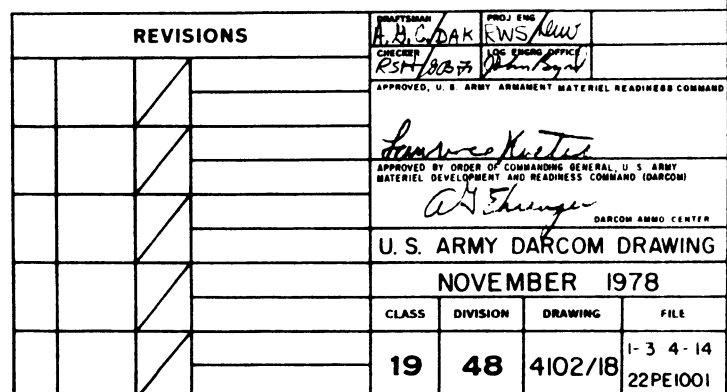 REVISIONS
DRAFTSMAN
PROJ ENG
A.G.C./DAK
RWS/
CHECKER
LOG ENGRG OFFICE
RSH/
John Byrd
APPROVED, U. S. ARMY ARMAMENT MATERIEL READINESS COMMAND
APPROVED BY ORDER OF COMMANDING GENERAL, U S ARMY
MATERIEL DEVELOPMENT AND READINESS COMMAND (DARCOM)
DARCOM AMMO CENTER
U. S. ARMY DARCOM DRAWING
NOVEMBER 1978
CLASS
DIVISION
DRAWING
FILE
19
48
4102/18
1-3 4-14
22PE1001